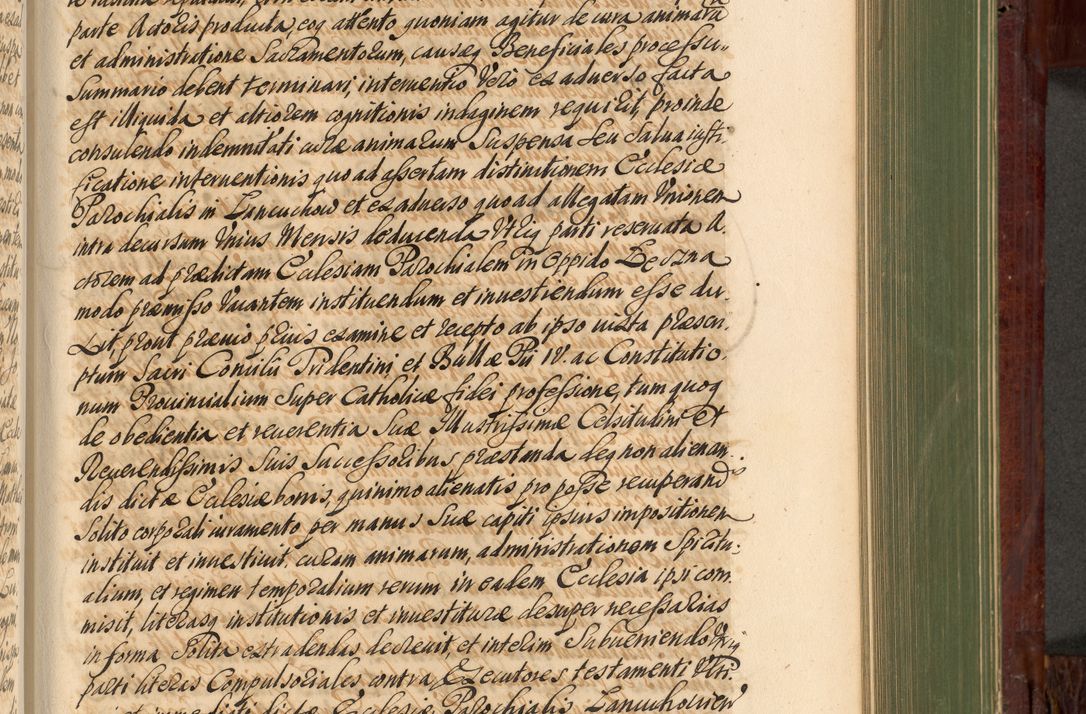 parte Actoris producta, eoq attento quoniam agitur de cura animarũ
et administratione Sacramentorum, causæq Beneficiales processu
Summario debent terminari, interventio Vero ex adverso facta
est illiquida et altiorem cognitionis indaginem requirit, proinde
consulendo indemnitati curæ animarum Suspensa Seu Salva iusti-
ficatione interventionis quo ad assertam distinctionem Ecclesiæ
Parochialis in Lancuchow et ex adverso quo ad allegatam Vnionem
intra decursum Vnius Mensis deducenda Vtriq parti reservata A-
ctorem ad prædictam Ecclesiam Parochialem in Oppido
modo præmisso Vacantem instituendum et investiendum esse du-
xit, prout prævio prius examine et recepto ab ipso iuxta præscri-
ptum Sacri Concilii Tridentini et Bullæ Pii IV. ac Constitutio-
num Provincialium Super Catholicæ fidei professione, tum quoq
de obedientia et reverentia Suæ Illustrissimæ Celsitudini et
Reverendissimis Suis Successoribus, præstanda deq non alienan-
dis dictæ Ecclesiæ bonis, quinimo alienatis pro posse recuperandis
Solito corporali iuramento per manus Suæ capiti ipsius impositionem
instituit et investivit, curam animarum, administrationem Spiritu-
alium, et regimen temporalium rerum in eadem Ecclesia ipsi com-
misit, literasq institutionis et investituræ desuper necessarias
in forma Solita extradendas decrevit, et interim Subveniendo
parti literas Compulsoriales contra Executores testamenti
Ecclesiæ Parochialis Lancuchovien